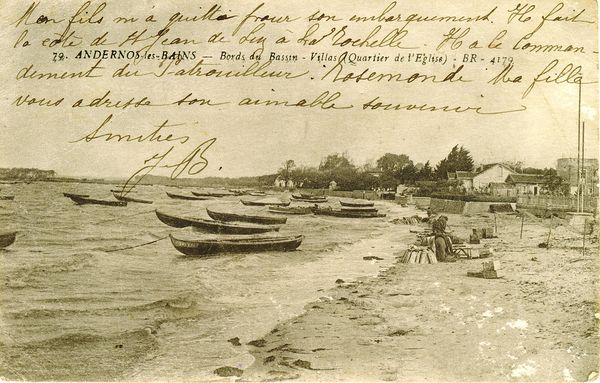 Mon fils m'a quitté pour son embarquement. Il fait
la côte de St Jean de Luz à La Rochelle. Il a le comman-
79. ANDERNOS-les-BAINS — Bords du Bassin - Villas (Quartier de l'Eglise) - BR - 4179
dement du Patrouilleur. Rosemonde Ma fille
vous adresse son aimable souvenir
Amitiés
J B.